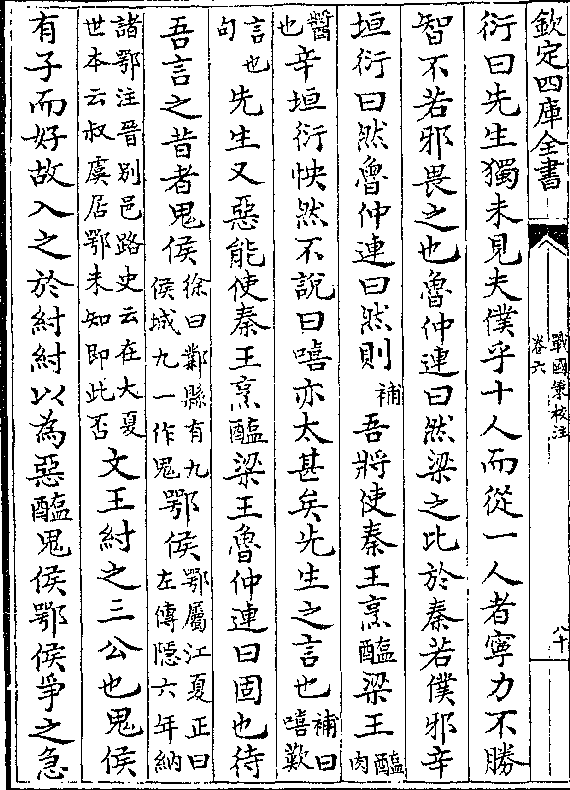 欽定四庫全書
戰國策校注
卷六
八十
衍曰先生獨未見夫僕乎十人而從一人者寧力不勝
智不若邪畏之也魯仲連曰然梁之比於秦若僕邪辛
垣衍曰然魯仲連曰然則補吾將使秦王烹醢梁王醢肉
醬也辛垣衍怏然不說曰嘻亦太甚矣先生之言也補曰嘻歎
言也句先生又惡能使秦王烹醢梁王魯仲連曰固也待
吾言之昔者鬼侯徐曰鄴縣有九侯城九一作鬼鄂侯鄂屬江夏正曰左傳隱六年納
諸鄂注晉別邑路史云在大夏世本云叔虞居鄂未知即此否文王紂之三公也鬼侯
有子而好故入之於紂紂以為惡醢鬼侯鄂侯爭之急